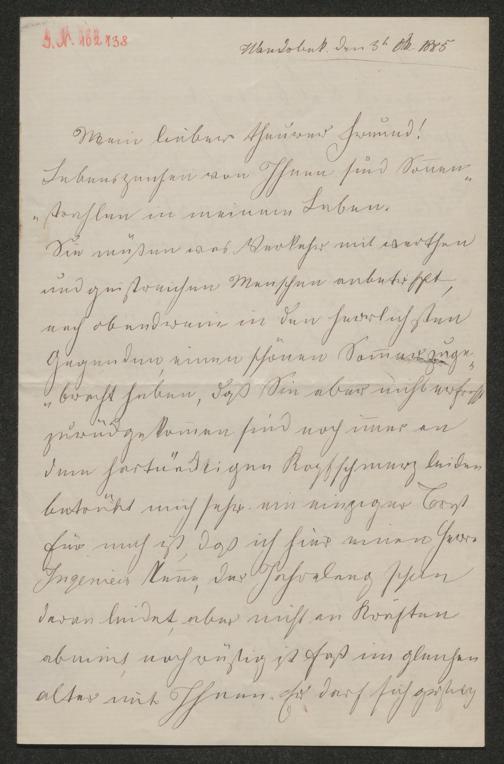 J. N. 162738
den 3t Okt. 1885
Mein lieber theurer Freund!
Lebenszeichen von Ihnen sind Sonnen„
„strahlen in meinem Leben.
Sie müßen was Verkehr mit werthen
und geistreichen Menschen anbetrifft,
noch obendrein in den herrlichsten
Gegenden, einen schönen Sommer zuge„
„bracht haben, daß Sie aber nicht erfrischt
zurückgekommen sind noch immer an
dem hartnäckigen Kopfschmerz leiden
betrübt mich sehr. ein einziger Trost
für mich ist, daß ich hier einen Herrn
Ingenieur kenne, der Jahrelang schon
daran leidet, aber nicht an Kräften
abnimt, noch rüstig ist fast im gleichen
alter mit Ihnen. Er darf sich geistig